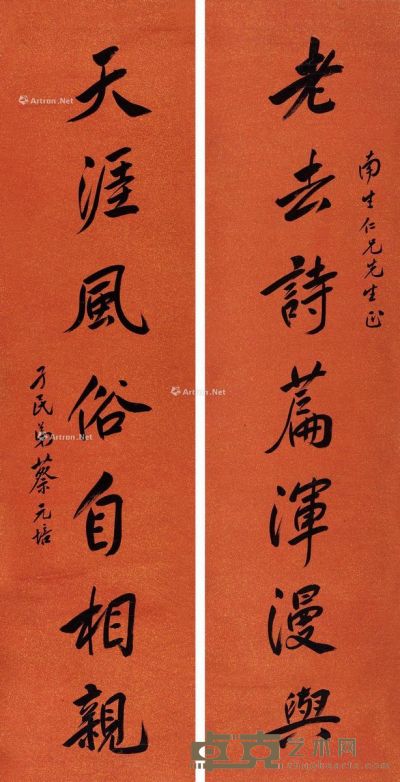 老去詩篇渾漫與
南生仁兄先生正
天涯風俗自相親
孑民弟蔡元培
Artron.Net
Artron.Net
Artron.Net
Artron.Net
卓克艺术网